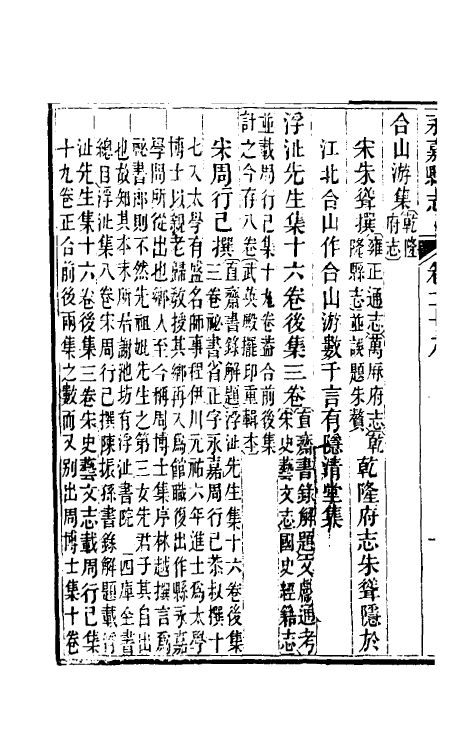 永嘉縣志 卷二十八
合山游集乾隆府志
宋朱聳撰雍正通志萬厯府志乾隆縣志並誤題朱贇 乾隆府志朱聳隱於
江北合山作合山游數千言有隱清堂集
浮沚先生集十六卷後集三卷直齋書錄解題文獻通考宋史藝文志國史經籍志
並載周行己集十九卷蓋合前後集
計之今存八卷武英殿擺印重輯本
宋周行己撰直齋書錄解題浮沚先生集十六卷後集
三卷祕書省正字永嘉周行己恭叔撰十
七入太學有盛名師事程伊川元祐六年進士爲太學
博士以親老歸教授其鄉再入爲館職復出作縣永嘉
學問所從出也鄉人至今稱周博士集序林越撰言爲
祕書郎則不然先祖妣先生之第三女先君子其自出
也故知其本末所居謝池坊有浮沚書院 四庫全書
總目浮沚集八卷宋周行己撰陳振孫書錄解題載浮
沚先生集十六卷後集三卷宋史藝文志載周行己集
十九卷正合前後兩集之數而又別出周博士集十卷